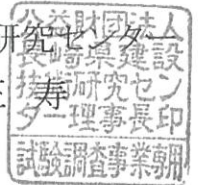 研究センター
寿
公益財団法人
長崎県建設
技術研究セン
ター理事長印
試験調査事業専用